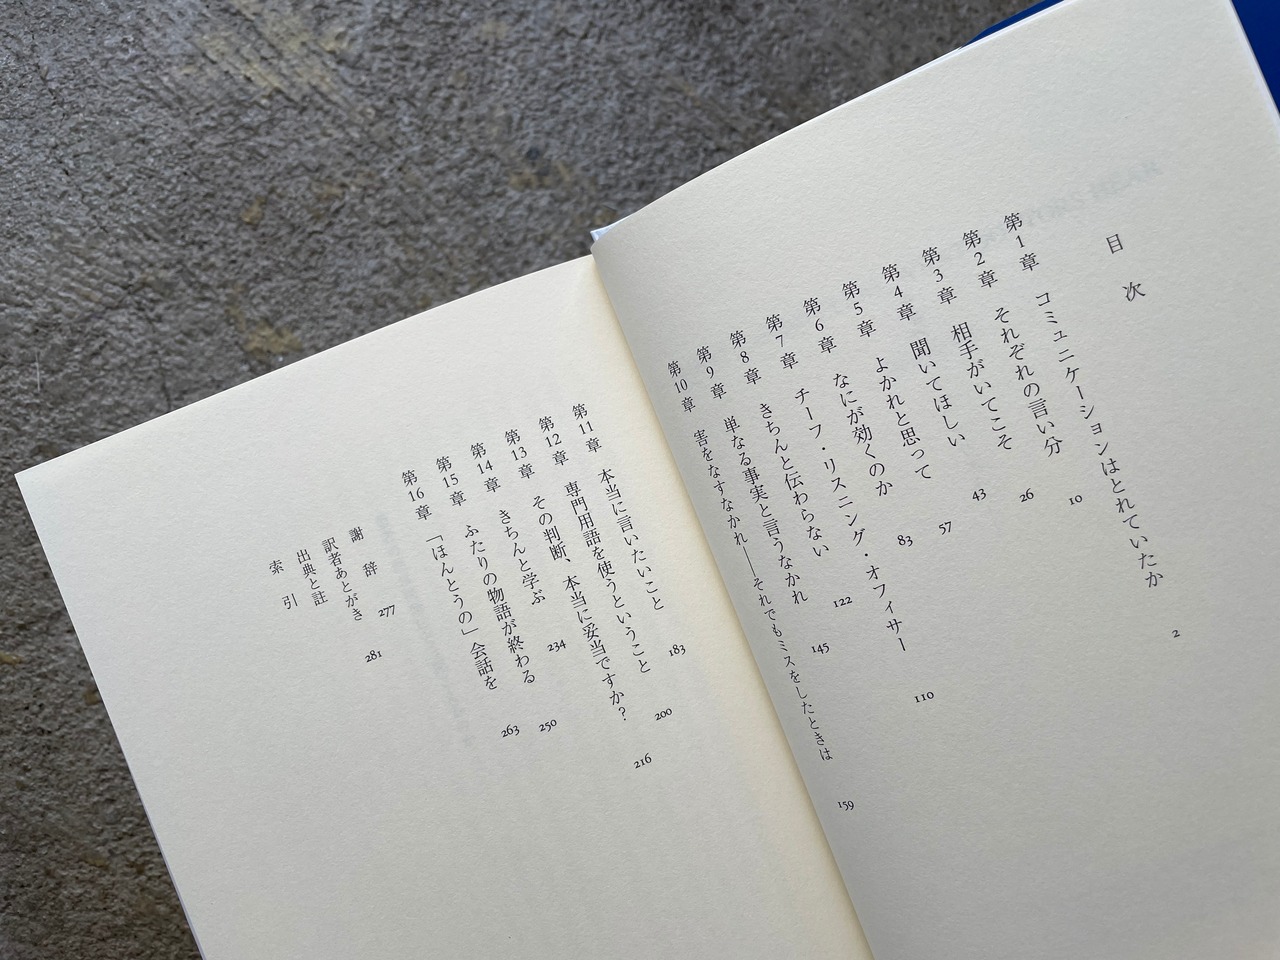 目次
第1章 コミュニケーションはとれていたか 2
第2章 それぞれの言い分 10
第3章 相手がいてこそ 26
第4章 聞いてほしい 43
第5章 よかれと思って 57
第6章 なにが効くのか 83
第7章 チーフ・リスニング・オフィサー 110
第8章 きちんと伝わらない 122
第9章 単なる事実と言うなかれ 145
第10章 害をなすなかれ——それでもミスをしたときは 159
第11章 本当に言いたいこと 183
第12章 専門用語を使うということ 200
第13章 その判断、本当に妥当ですか? 216
第14章 きちんと学ぶ 234
第15章 ふたりの物語が終わる 250
第16章 「ほんとうの」会話を 263
謝辞 277
訳者あとがき 281
出典と註
索引